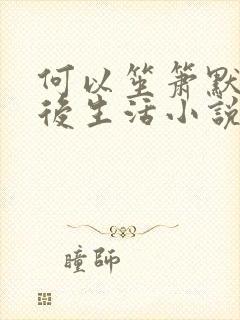 何以笙箫默
後生活小説
瞳師